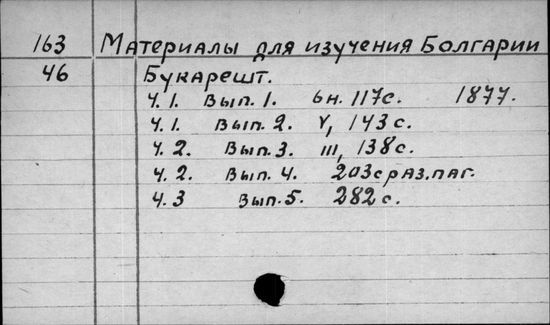 163 Материалы для изучения Болгарии
46 Букарешт.
ч. 1. Вып. 1. 6н. 117с. 1877.
ч. 1. Вып. 2. V, 143 с.
ч. 2. Вып. 3. III, 138 с.
ч. 2. Вып. 4. 203 с раз. паг.
ч. 3 Вып. 5. 282 с.